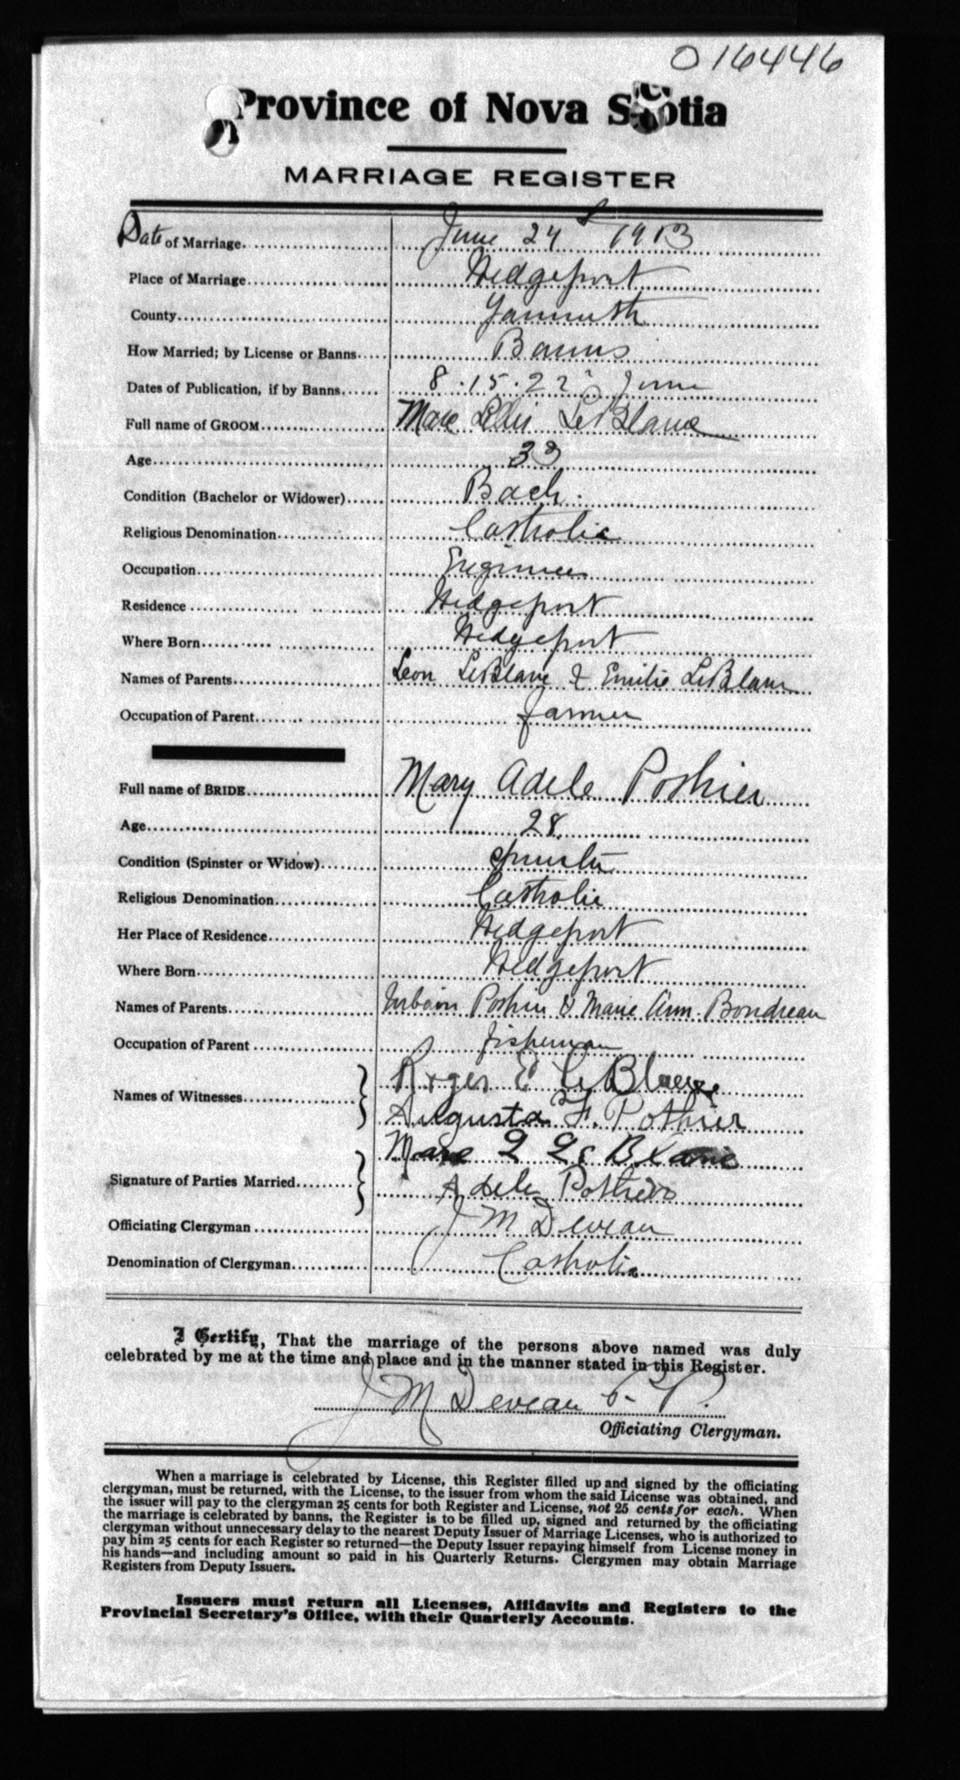 016446
Province of Nova Scotia
MARRIAGE REGISTER
Date of Marriage June 24 1913
Place of Marriage Wedgeport
County Yarmouth
How Married; by License or Banns Banns
Dates of Publication, if by Banns 8.15.22 June
Full name of GROOM Marc Ellis LeBlanc
Age 33
Condition (Bachelor or Widower) Bach.
Religious Denomination Catholic
Occupation Engineer
Residence Wedgeport
Where Born Wedgeport
Names of Parents Leon LeBlanc & Emilie LeBlanc
Occupation of Parent farmer
Full name of BRIDE Mary Adele Pothier
Age 28
Condition (Spinster or Widow) spinster
Religious Denomination Catholic
Her Place of Residence Wedgeport
Where Born Wedgeport
Names of Parents Urbain Pothier & Marie Ann. Boudreau
Occupation of Parent fisherman
Names of Witnesses Roger E LeBlanc
Augusta F. Pothier
Signature of Parties Married Marc Le Blanc
Adele Pothier
Officiating Clergyman J M Deveau
Denomination of Clergyman Catholic
I Certify, That the marriage of the persons above named was duly
celebrated by me at the time and place and in the manner stated in this Register.
J M Deveau P.P.
Officiating Clergyman.
When a marriage is celebrated by License, this Register filled up and signed by the officiating
clergyman, must be returned, with the License, to the issuer from whom the said License was obtained, and
the issuer will pay to the clergyman 25 cents for both Register and License, not 25 cents for each. When
the marriage is celebrated by banns, the Register is to be filled up, signed and returned by the officiating
clergyman without unnecessary delay to the nearest Deputy Issuer of Marriage Licenses, who is authorized to
pay him 25 cents for each Register so returned—the Deputy Issuer repaying himself from License money in
his hands—and including amount so paid in his Quarterly Returns. Clergymen may obtain Marriage
Registers from Deputy Issuers.
Issuers must return all Licenses, Affidavits and Registers to the
Provincial Secretary's Office, with their Quarterly Accounts.